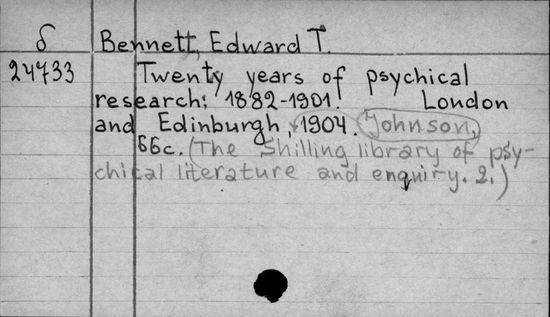 δ Bennett, Edward T.
24733 Twenty years of psychical
research; 1882-1901. London
and Edinburgh, 1904. Johnson,
66c. (The Shilling library of psy-
chical literature and enquiry. 2.)